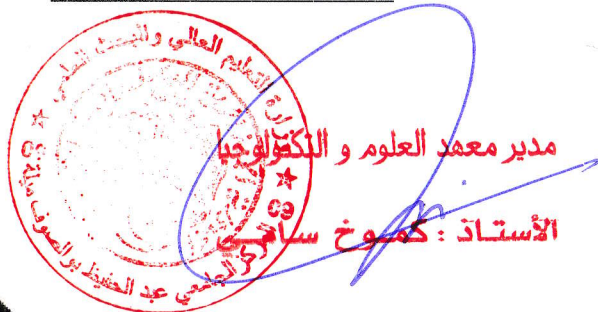 وزارة التعليم العالي والبحث العلمي
المركز الجامعي عبد الحفيظ بوالصوف ميلة
مدير معهد العلوم و التكنولوجيا
الأستـاذ : كمـوخ سـامـي